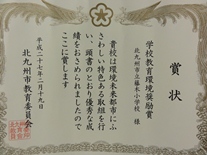 賞状
学校教育環境奨励賞
北九州市立藤木小学校 様
貴校は環境未来都市にふ
さわしい特色ある取組を行
い、頭書のとおり優秀な成
績をおさめられましたので
ここに賞します
平成二十七年二月十九日
北九州市教育委員会